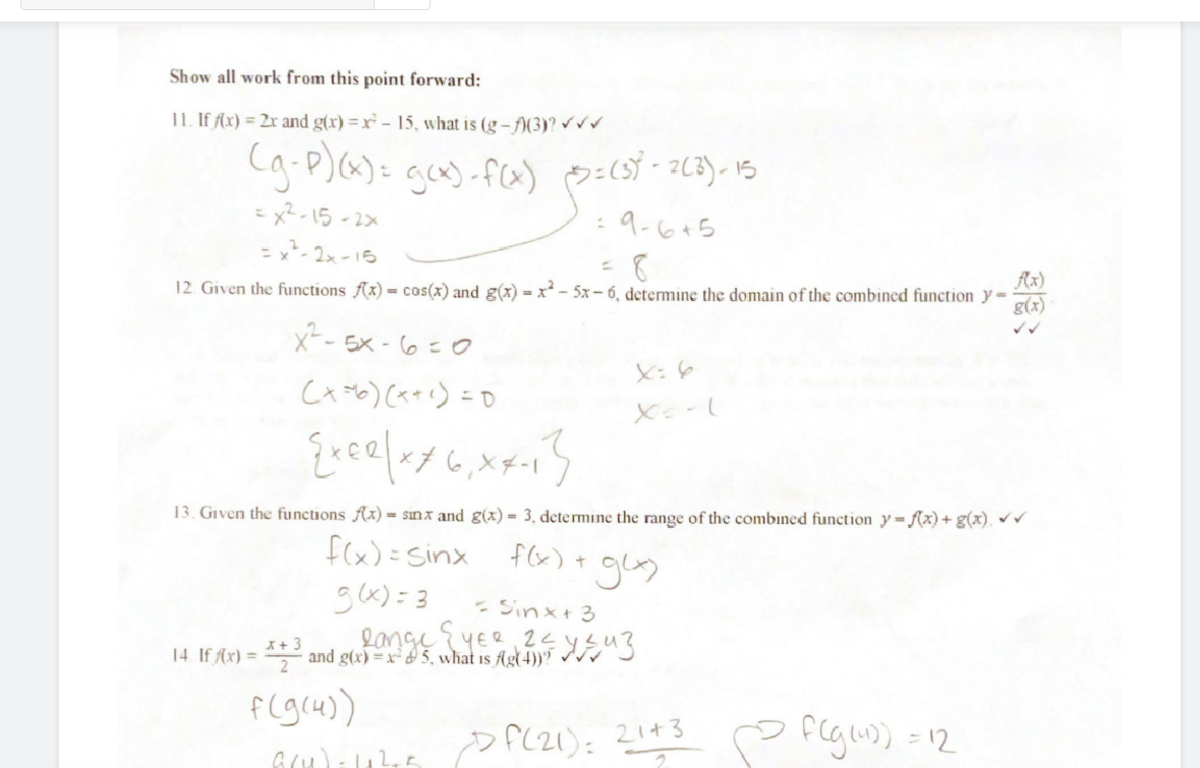 Show all work from this point forward:
11. If f(x) = 2x and g(x) = x² – 15, what is (g – f)(3)? ✓✓✓
(g-f)(x) = g(x) - f(x) → = (3)² - 2(3) - 15
= x² - 15 - 2x
= 9 - 6 + 5
= x² - 2x - 15
= 8
12 Given the functions f(x) = cos(x) and g(x) = x² – 5x – 6, determine the domain of the combined function y = f(x)/g(x) ✓✓
x² - 5x - 6 = 0
x = 6
(x - 6)(x + 1) = 0
x = -1
{x ∈ R | x ≠ 6, x ≠ -1}
13. Given the functions f(x) = sin x and g(x) = 3, determine the range of the combined function y = f(x) + g(x). ✓✓
f(x) = sinx f(x) + g(x)
g(x) = 3 = sinx + 3
Range {y ∈ R, 2 ≤ y ≤ 4}
14 If f(x) = (x + 3)/2 and g(x) = x² + 5, what is f(g(4))? ✓✓✓
f(g(4))
→ f(21) = (21+3)/2 → f(g(4)) = 12
g(4) = 4² + 5